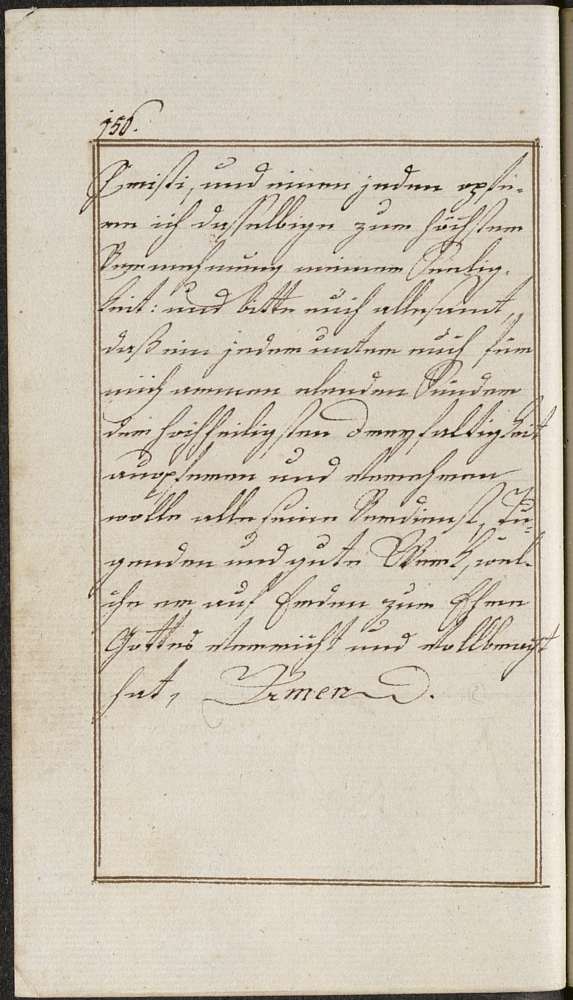 156.
Cristi, und einen jeden opfe-
re ich dasselbige zur höchsten
Vermehrung meiner Seelig-
keit: und bitte euch allesamt,
daß ein jeder unter euch für
mich armen elenden Sünder
der hochheiligsten Dreyfaltigkeit
aufopferen und verehren
wolle alle seine Verdienst, Tu-
genden und gute Werk, wel-
che er auf Erden zur Ehre
Gottes verricht und vollbracht
hat, Amen.